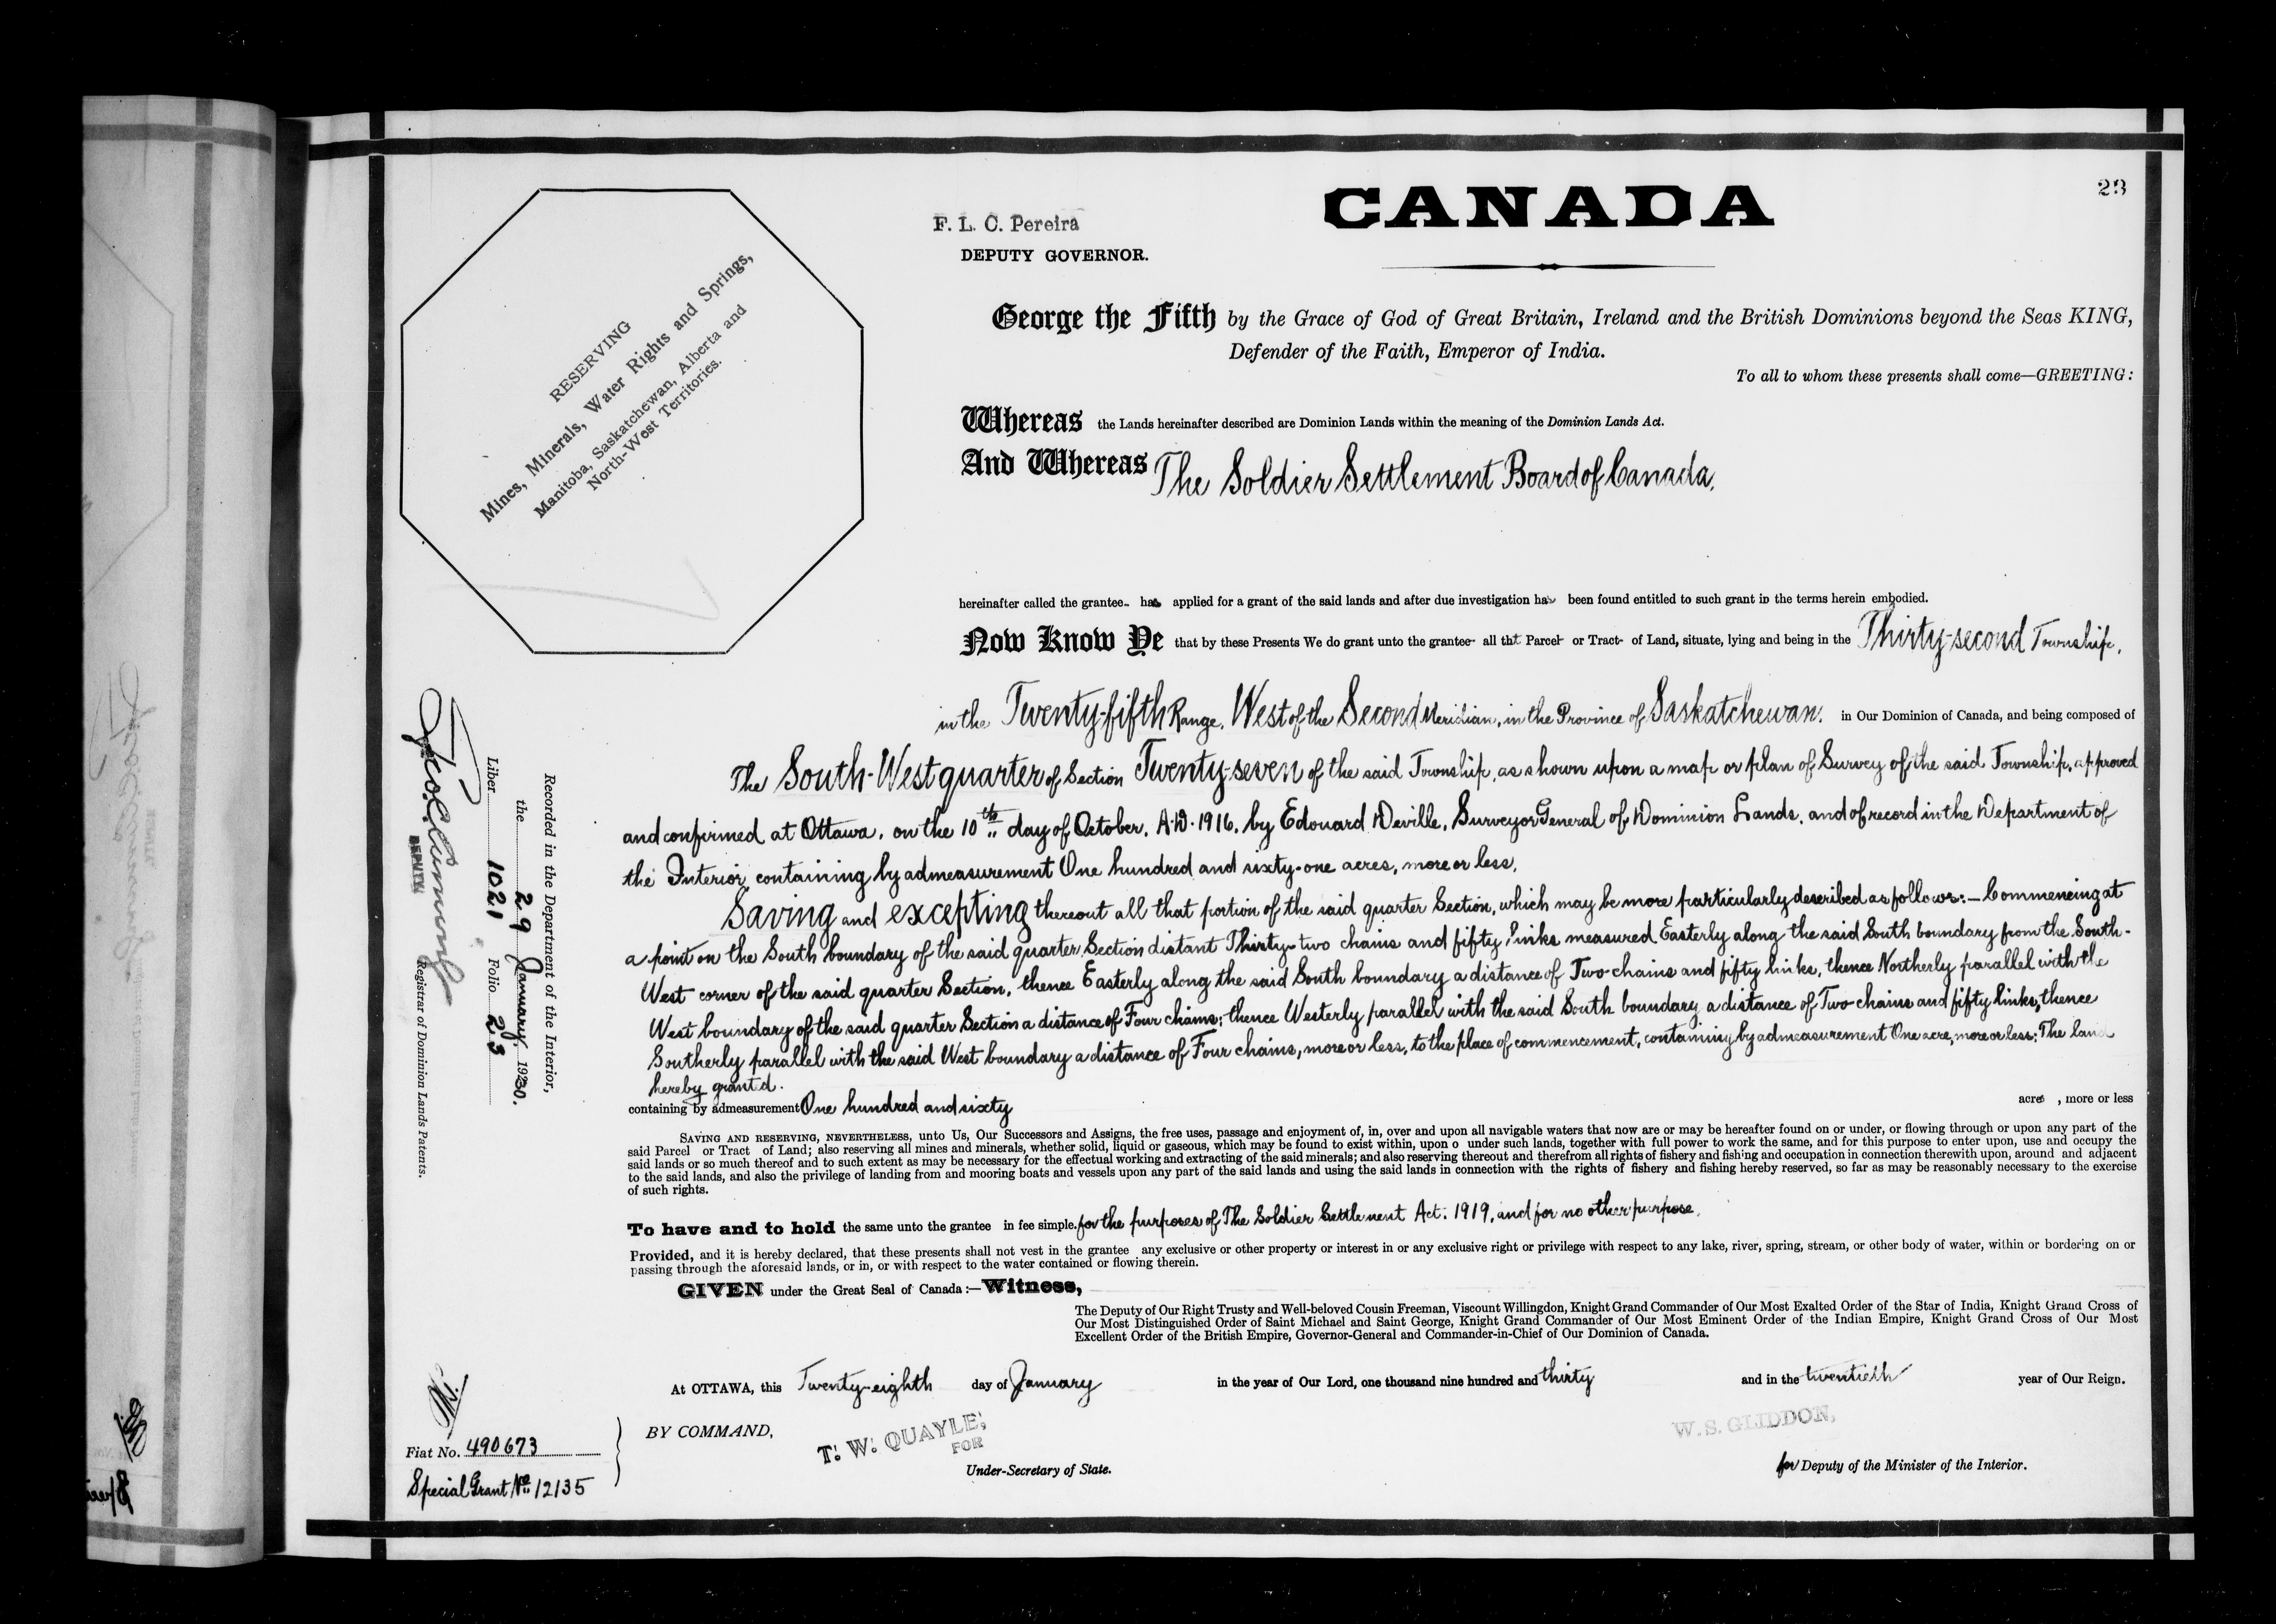 23
CANADA
F. L. C. Pereira
DEPUTY GOVERNOR.
RESERVING
Mines, Minerals, Water Rights and Springs,
Manitoba, Saskatchewan, Alberta and
North-West Territories.
George the Fifth by the Grace of God of Great Britain, Ireland and the British Dominions beyond the Seas KING,
Defender of the Faith, Emperor of India.
To all to whom these presents shall come—GREETING:
Whereas the Lands hereinafter described are Dominion Lands within the meaning of the Dominion Lands Act.
And Whereas The Soldier Settlement Board of Canada,
hereinafter called the grantee has applied for a grant of the said lands and after due investigation has been found entitled to such grant in the terms herein embodied.
Now Know Ye that by these Presents We do grant unto the grantee all that Parcel or Tract of Land, situate, lying and being in the Thirty-second Township,
in the Twenty-fifth Range, West of the Second Meridian, in the Province of Saskatchewan. in Our Dominion of Canada, and being composed of
The South-West quarter of Section Twenty-seven of the said Township, as shown upon a map or plan of Survey of the said Township, approved
and confirmed at Ottawa, on the 10th day of October, A.D. 1916, by Edouard Deville, Surveyor General of Dominion Lands, and of record in the Department of
the Interior, containing by admeasurement One hundred and sixty-one acres, more or less,
Saving and excepting thereout all that portion of the said quarter Section, which may be more particularly described as follows:— Commencing at
a point on the South boundary of the said quarter Section distant Thirty-two chains and fifty links measured Easterly along the said South boundary from the South-
West corner of the said quarter Section, thence Easterly along the said South boundary a distance of Two chains and fifty links, thence Northerly parallel with the
West boundary of the said quarter Section a distance of Four chains; thence Westerly parallel with the said South boundary a distance of Two chains and fifty links, thence
Southerly parallel with the said West boundary a distance of Four chains, more or less, to the place of commencement, containing by admeasurement One acre, more or less; The land
hereby granted.
containing by admeasurement One hundred and sixty acres , more or less
SAVING AND RESERVING, NEVERTHELESS, unto Us, Our Successors and Assigns, the free uses, passage and enjoyment of, in, over and upon all navigable waters that now are or may be hereafter found on or under, or flowing through or upon any part of the
said Parcel or Tract of Land; also reserving all mines and minerals, whether solid, liquid or gaseous, which may be found to exist within, upon o under such lands, together with full power to work the same, and for this purpose to enter upon, use and occupy the
said lands or so much thereof and to such extent as may be necessary for the effectual working and extracting of the said minerals; and also reserving thereout and therefrom all rights of fishery and fishing and occupation in connection therewith upon, around and adjacent
to the said lands, and also the privilege of landing from and mooring boats and vessels upon any part of the said lands and using the said lands in connection with the rights of fishery and fishing hereby reserved, so far as may be reasonably necessary to the exercise
of such rights.
To have and to hold the same unto the grantee in fee simple. for the purposes of The Soldier Settlement Act. 1919, and for no other purpose.
Provided, and it is hereby declared, that these presents shall not vest in the grantee any exclusive or other property or interest in or any exclusive right or privilege with respect to any lake, river, spring, stream, or other body of water, within or bordering on or
passing through the aforesaid lands, or in, or with respect to the water contained or flowing therein.
GIVEN under the Great Seal of Canada:—Witness,
The Deputy of Our Right Trusty and Well-beloved Cousin Freeman, Viscount Willingdon, Knight Grand Commander of Our Most Exalted Order of the Star of India, Knight Grand Cross of
Our Most Distinguished Order of Saint Michael and Saint George, Knight Grand Commander of Our Most Eminent Order of the Indian Empire, Knight Grand Cross of Our Most
Excellent Order of the British Empire, Governor-General and Commander-in-Chief of Our Dominion of Canada.
At OTTAWA, this Twenty-eighth day of January in the year of Our Lord, one thousand nine hundred and thirty and in the twentieth year of Our Reign.
BY COMMAND,
T. W. QUAYLE,
FOR
Under-Secretary of State.
W. S. GLIDDON,
for Deputy of the Minister of the Interior.
Fiat No. 490673
Special Grant No. 12135
Recorded in the Department of the Interior,
the 29 January 1930.
Liber 1021 Folio 23
DEPUTY
Registrar of Dominion Lands Patents.